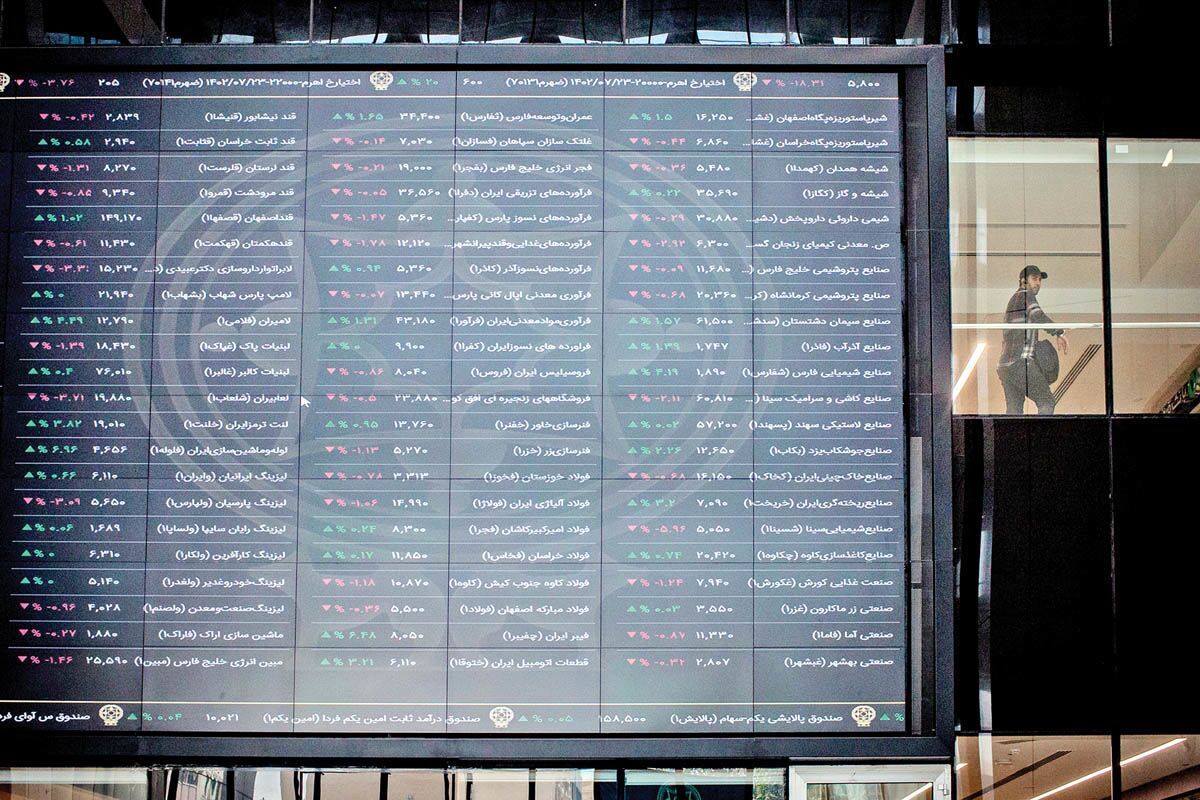 ۵,۸۰۰ ▼ % -۱۸.۳۱ اختیارخ اهرم-۲۰۰۰۰-۱۴۰۲/۰۷/۲۳ (ضهرم۷۰۱۳۱) ۶۰۰ ▲ % ۲۰ اختیارخ اهرم-۲۲۰۰۰-۱۴۰۲/۰۷/۲۳ (ضهرم۷۰۱۴۱) ۲۰۵ ▼ % -۳.۷۶
شیرپاستوریزه‌پگاه‌اصفهان (غش... ۱۶,۲۵۰ ▲ % ۱.۵ عمران‌وتوسعه‌فارس (ثفارس۱) ۳۴,۴۰۰ ▲ % ۱.۶۵ قند نیشابور (قنیشا۱) ۲,۸۳۹ ▼ % -۰.۴۲
شیرپاستوریزه‌پگاه‌خراسان (غشا... ۶,۸۶۰ ▼ % -۰.۴۴ غلتک سازان سپاهان (فسازان۱) ۷,۰۳۰ ▼ % -۰.۱۴ قند ثابت خراسان (قثابت۱) ۲,۹۴۰ ▲ % ۰.۵۸
شیشه همدان (کهمدا۱) ۵,۴۸۰ ▼ % -۰.۳۶ فجر انرژی خلیج فارس (بفجر۱) ۱۹,۰۰۰ ▼ % -۰.۲۱ قند لرستان (قلرست۱) ۸,۲۷۰ ▼ % -۱.۳۱
شیشه و گاز (کگاز۱) ۳۵,۶۹۰ ▲ % ۰.۲۲ فرآورده‌های تزریقی ایران (دفرا۱) ۳۶,۵۶۰ ▼ % -۰.۰۵ قند مرودشت (قمرو۱) ۹,۳۴۰ ▼ % -۰.۸۵
شیمی داروئی داروپخش (دشی... ۳۰,۸۸۰ ▼ % -۰.۲۹ فرآورده‌های نسوز پارس (کفپار... ۵,۳۶۰ ▼ % -۱.۴۷ قنداصفهان (قصفها۱) ۱۴۹,۱۷۰ ▲ % ۱.۰۲
ص. معدنی کیمیای زنجان گس... ۶,۳۰۰ ▼ % -۲.۹۲ فرآورده‌های‌غذایی‌وقندپیرانشهر... ۱۲,۱۲۰ ▼ % -۱.۷۸ قندهکمتان (قهکمت۱) ۱۱,۴۳۰ ▼ % -۰.۶۱
صنایع پتروشیمی خلیج فارس (... ۱۱,۶۸۰ ▼ % -۰.۰۹ فرآورده‌های‌نسوزآذر (کاذر۱) ۵,۳۶۰ ▲ % ۰.۹۴ لابراتوارداروسازی دکترعبیدی (د... ۱۵,۲۳۰ ▼
صنایع پتروشیمی کرمانشاه (کر... ۲۰,۳۶۰ ▼ % -۰.۶۸ فرآوری معدنی اپال کانی پارس... ۱۳,۴۴۰ ▼ % -۰.۰۷ لامپ پارس شهاب (بشهاب۱) ۲۱,۹۴۰ ▲ % ۰
صنایع سیمان دشتستان (سدشت... ۶۱,۵۰۰ ▲ % ۱.۵۷ فرآوری‌موادمعدنی‌ایران (فرآور۱) ۴۳,۱۸۰ ▲ % ۱.۳۱ لامیران (فلامی۱) ۱۲,۷۹۰ ▲ % ۴.۴۹
صنایع آذرآب (فاذر۱) ۱,۷۴۷ ▲ % ۱.۳۹ فراورده های نسوزایران (کفرا۱) ۹,۹۰۰ ▲ % ۰ لبنیات پاک (غپاک۱) ۱۸,۴۳۰ ▼ % -۱.۳۹
صنایع شیمیایی فارس (شفارس۱) ۱,۸۹۰ ▲ % ۴.۱۹ فروسیلیس ایران (فروس۱) ۸,۰۴۰ ▼ % -۰.۸۶ لبنیات کالبر (غالبر۱) ۷۶,۰۱۰ ▲ % ۰.۴
صنایع کاشی و سرامیک سینا (... ۶۰,۸۱۰ ▼ % -۲.۱۱ فروشگاههای زنجیره ای افق کو... ۲۳,۸۸۰ ▼ % -۰.۵ لعابیران (شلعاب۱) ۱۹,۸۸۰ ▼ % -۳.۷۱
صنایع لاستیکی سهند (پسهند۱) ۵۷,۲۰۰ ▲ % ۰.۰۲ فنرسازی‌خاور (خفنر۱) ۱۳,۷۶۰ ▲ % ۰.۹۵ لنت ترمزایران (خلنت۱) ۱۹,۰۱۰ ▲ % ۳.۸۲
صنایع‌جوشکاب‌یزد (بکاب۱) ۱۲,۶۵۰ ▲ % ۲.۲۶ فنرسازی‌زر (خزر۱) ۵,۲۷۰ ▼ % -۱.۱۳ لوله‌وماشین‌سازی‌ایران (فلوله۱) ۴,۶۵۶ ▲ % ۶.۹۶
صنایع‌خاک‌چینی‌ایران (کخاک۱) ۱۶,۱۵۰ ▼ % -۰.۶۸ فولاد خوزستان (فخوز۱) ۳,۳۱۳ ▼ % -۰.۷۸ لیزینگ ایرانیان (وایران۱) ۶,۱۱۰ ▲ % ۰.۶۶
صنایع‌ریخته‌گری‌ایران (خریخت۱) ۷,۰۹۰ ▲ % ۳.۲ فولاد آلیاژی ایران (فولاژ۱) ۱۴,۹۹۰ ▼ % -۱.۰۶ لیزینگ پارسیان (ولپارس۱) ۵,۶۵۰ ▼ % -۳.۰۹
صنایع‌شیمیایی‌سینا (شسینا۱) ۵,۰۵۰ ▼ % -۵.۹۶ فولاد امیرکبیرکاشان (فجر۱) ۸,۳۰۰ ▲ % ۰.۲۴ لیزینگ رایان سایپا (ولساپا۱) ۱,۶۸۹ ▲ % ۰.۰۶
صنایع‌کاغذسازی‌کاوه (چکاوه۱) ۲۰,۴۲۰ ▲ % ۰.۷۴ فولاد خراسان (فخاس۱) ۱۱,۸۵۰ ▲ % ۰.۱۷ لیزینگ کارآفرین (ولکار۱) ۶,۳۱۰ ▲ % ۰
صنعت غذایی کورش (غکورش۱) ۷,۹۴۰ ▼ % -۱.۲۴ فولاد کاوه جنوب کیش (کاوه۱) ۱۰,۸۷۰ ▼ % -۱.۱۸ لیزینگ‌خودروغدیر (ولغدر۱) ۵,۱۴۰ ▲ % ۰
صنعتی زر ماکارون (غزر۱) ۳,۵۵۰ ▲ % ۰.۰۳ فولاد مبارکه اصفهان (فولاد۱) ۵,۵۰۰ ▼ % -۰.۳۶ لیزینگ‌صنعت‌ومعدن (ولصنم۱) ۴,۰۲۸ ▼ % -۰.۹۶
صنعتی آما (فاما۱) ۱۱,۳۳۰ ▼ % -۰.۸۷ فیبر ایران (چفیبر۱) ۸,۰۵۰ ▲ % ۶.۴۸ ماشین سازی اراک (فاراک۱) ۱,۸۸۰ ▼ % -۰.۲۷
صنعتی بهشهر (غبشهر۱) ۲,۸۰۷ ▼ % -۰.۳۲ قطعات اتومبیل ایران (ختوقا۱) ۶,۱۱۰ ▲ % ۳.۲۱ مبین انرژی خلیج فارس (مبین۱) ۲۵,۵۹۰ ▼ % -۱.۴۶
▲ % صندوق پالایشی یکم-سهام (پالایش۱) ۱۵۸,۵۰۰ ▲ % ۰.۰۵ صندوق درآمد ثابت امین یکم فردا (امین یکم۱) ۱۰,۰۲۱ ▲ % ۰.۰۴ صندوق س آوای فرد